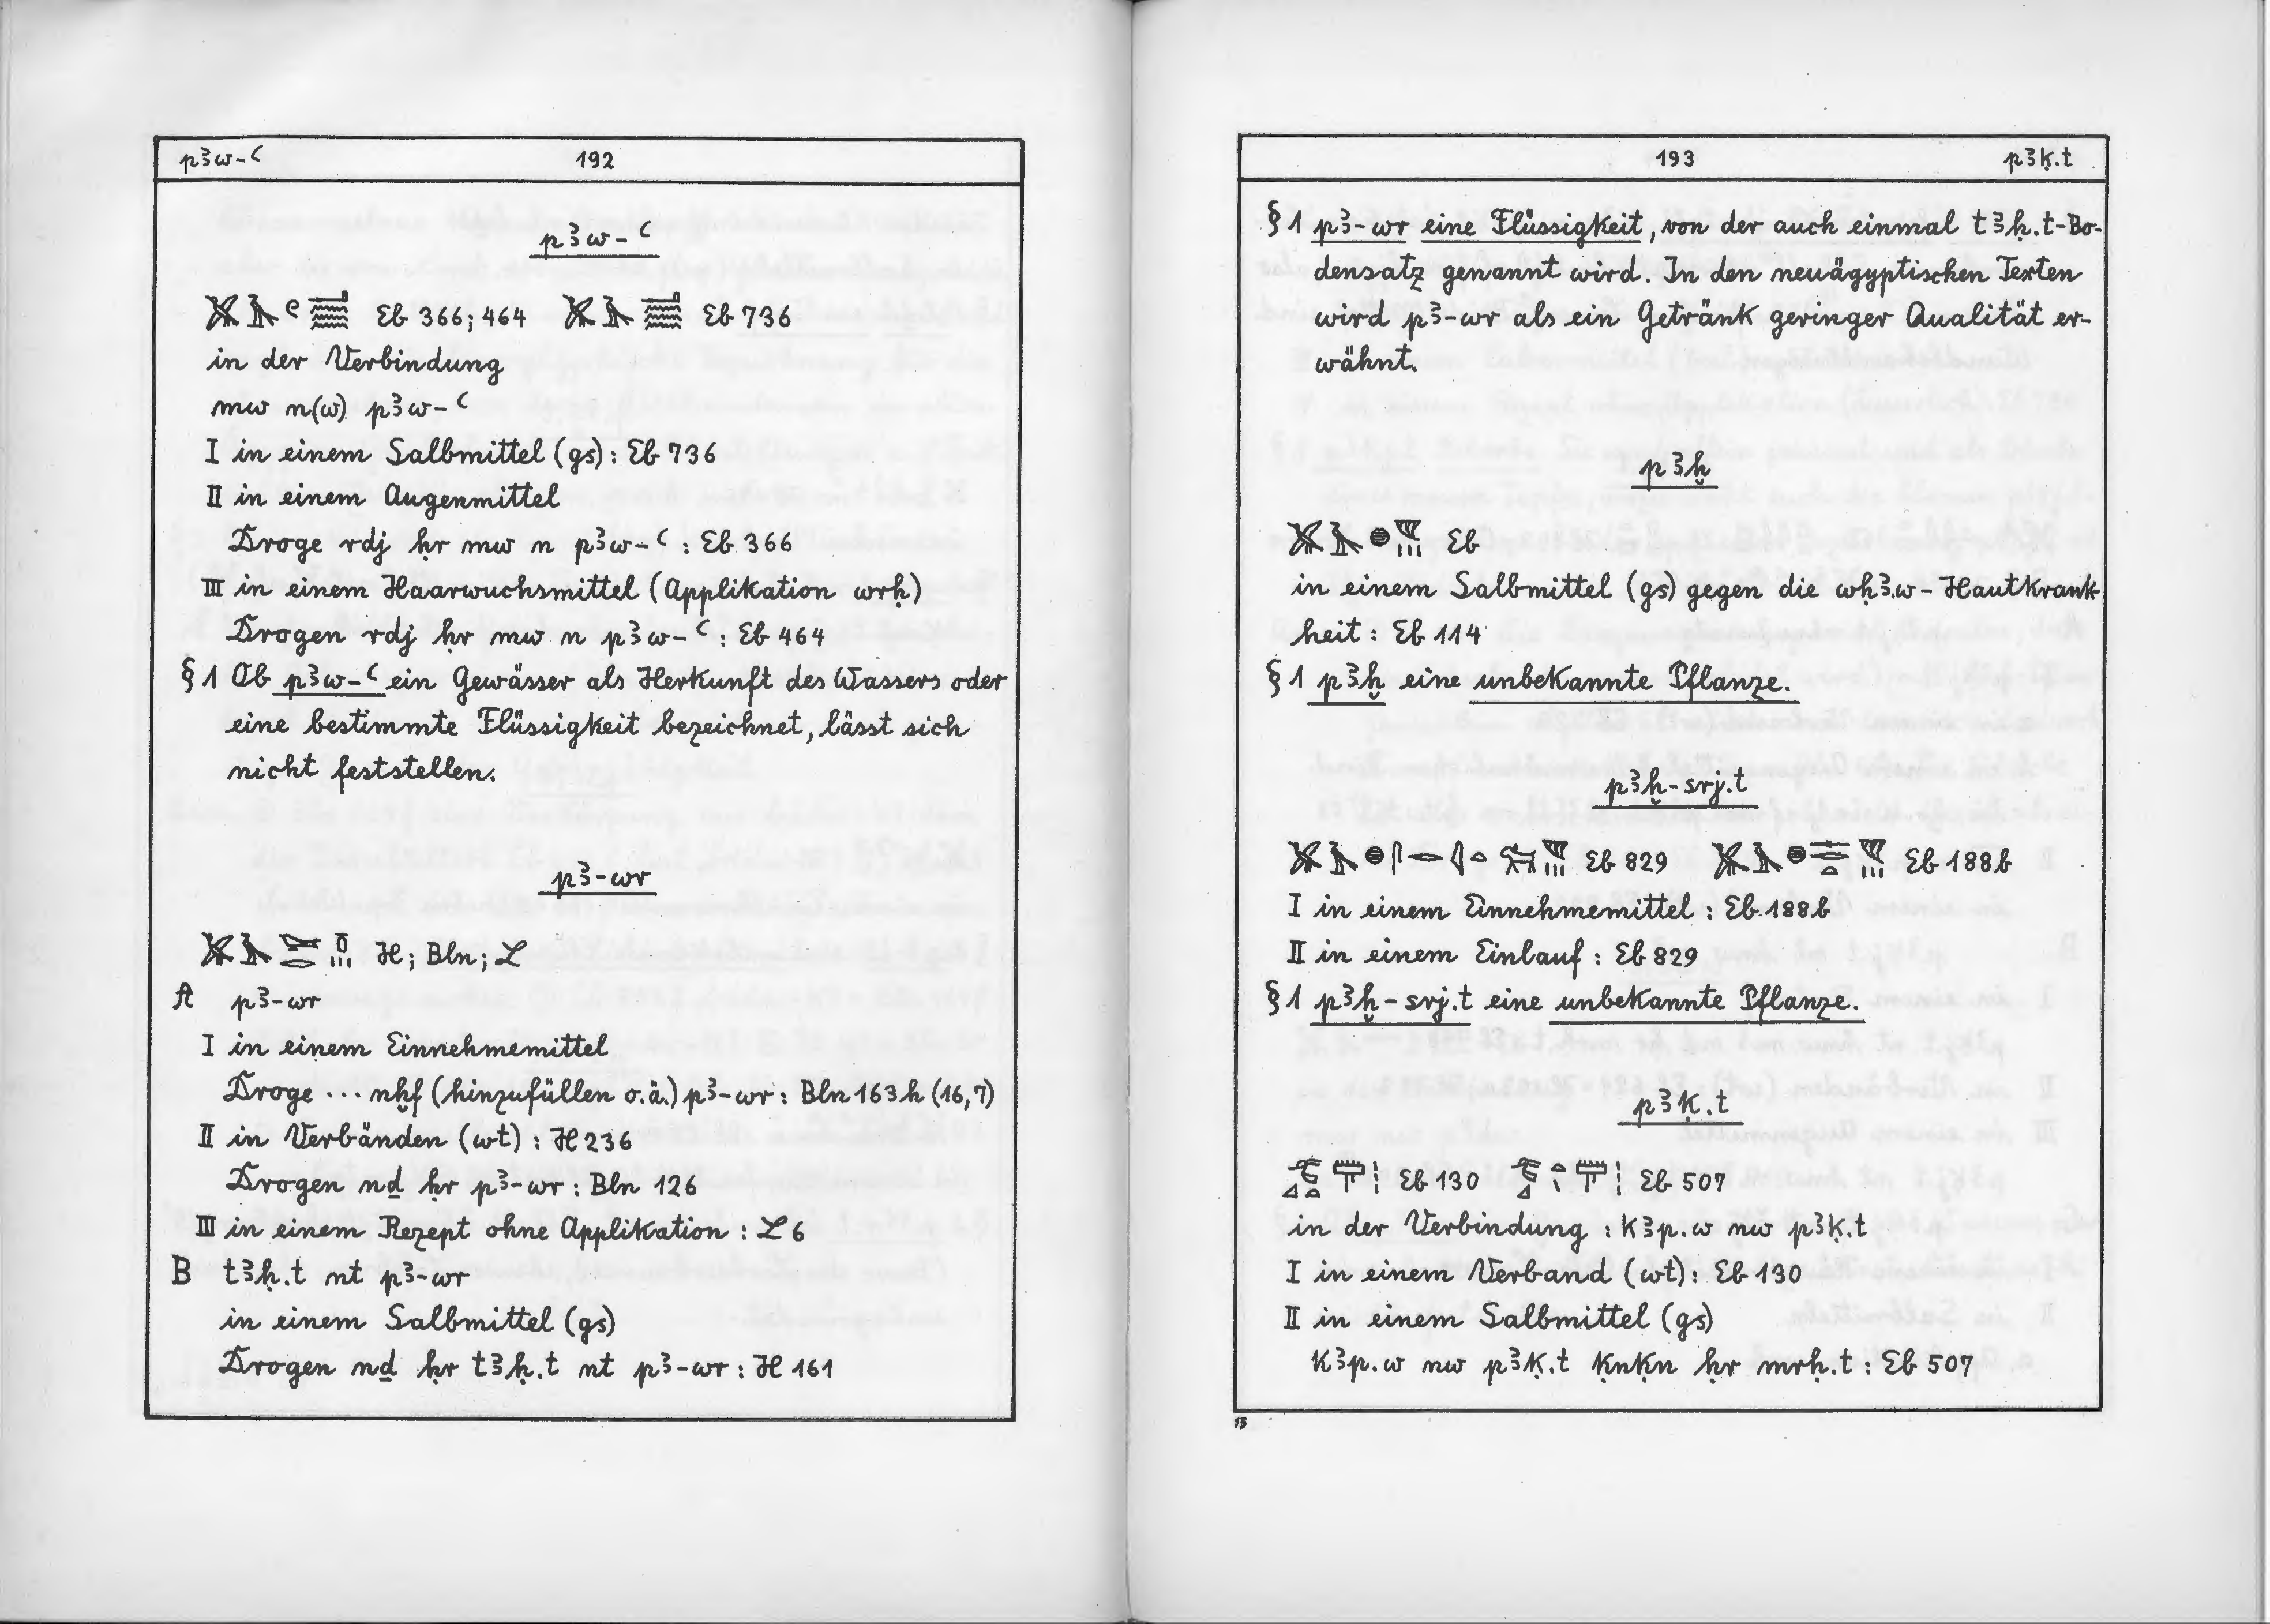 pꜣw-ꜥ 192
pꜣw-ꜥ
Eb 366; 464 Eb 736
in der Verbindung
mw n(w) pꜣw-ꜥ
I in einem Salbmittel (gs): Eb 736
II in einem Augenmittel
Droge rdj ḥr mw n pꜣw-ꜥ : Eb 366
III in einem Haarwuchsmittel (Applikation wrḥ)
Drogen rdj ḥr mw n pꜣw-ꜥ : Eb 464
§ 1 Ob pꜣw-ꜥ ein Gewässer als Herkunft des Wassers oder
eine bestimmte Flüssigkeit bezeichnet, lässt sich
nicht feststellen.
pꜣ-wr
H; Bln; L
A pꜣ-wr
I in einem Einnehmemittel
Droge ... nḫf (hinzufüllen o.ä.) pꜣ-wr : Bln 163h (16,7)
II in Verbänden (wt) : H 236
Drogen nḏ ḥr pꜣ-wr : Bln 126
III in einem Rezept ohne Applikation : L 6
B tꜣḥ.t nt pꜣ-wr
in einem Salbmittel (gs)
Drogen nḏ ḥr tꜣḥ.t nt pꜣ-wr : H 161
193 pꜣḳ.t
§ 1 pꜣ-wr eine Flüssigkeit, von der auch einmal tꜣḥ.t-Bo-
densatz genannt wird. In den neuägyptischen Texten
wird pꜣ-wr als ein Getränk geringer Qualität er-
wähnt.
pꜣḫ
Eb
in einem Salbmittel (gs) gegen die wḥꜣ.w-Hautkrank-
heit : Eb 114
§ 1 pꜣḫ eine unbekannte Pflanze.
pꜣḫ-srj.t
Eb 829 Eb 188b
I in einem Einnehmemittel : Eb 188b
II in einem Einlauf : Eb 829
§ 1 pꜣḫ-srj.t eine unbekannte Pflanze.
pꜣḳ.t
Eb 130 Eb 507
in der Verbindung : kꜣp.w nw pꜣḳ.t
I in einem Verband (wt): Eb 130
II in einem Salbmittel (gs)
kꜣp.w nw pꜣḳ.t ḳnḳn ḥr mrḥ.t : Eb 507
13